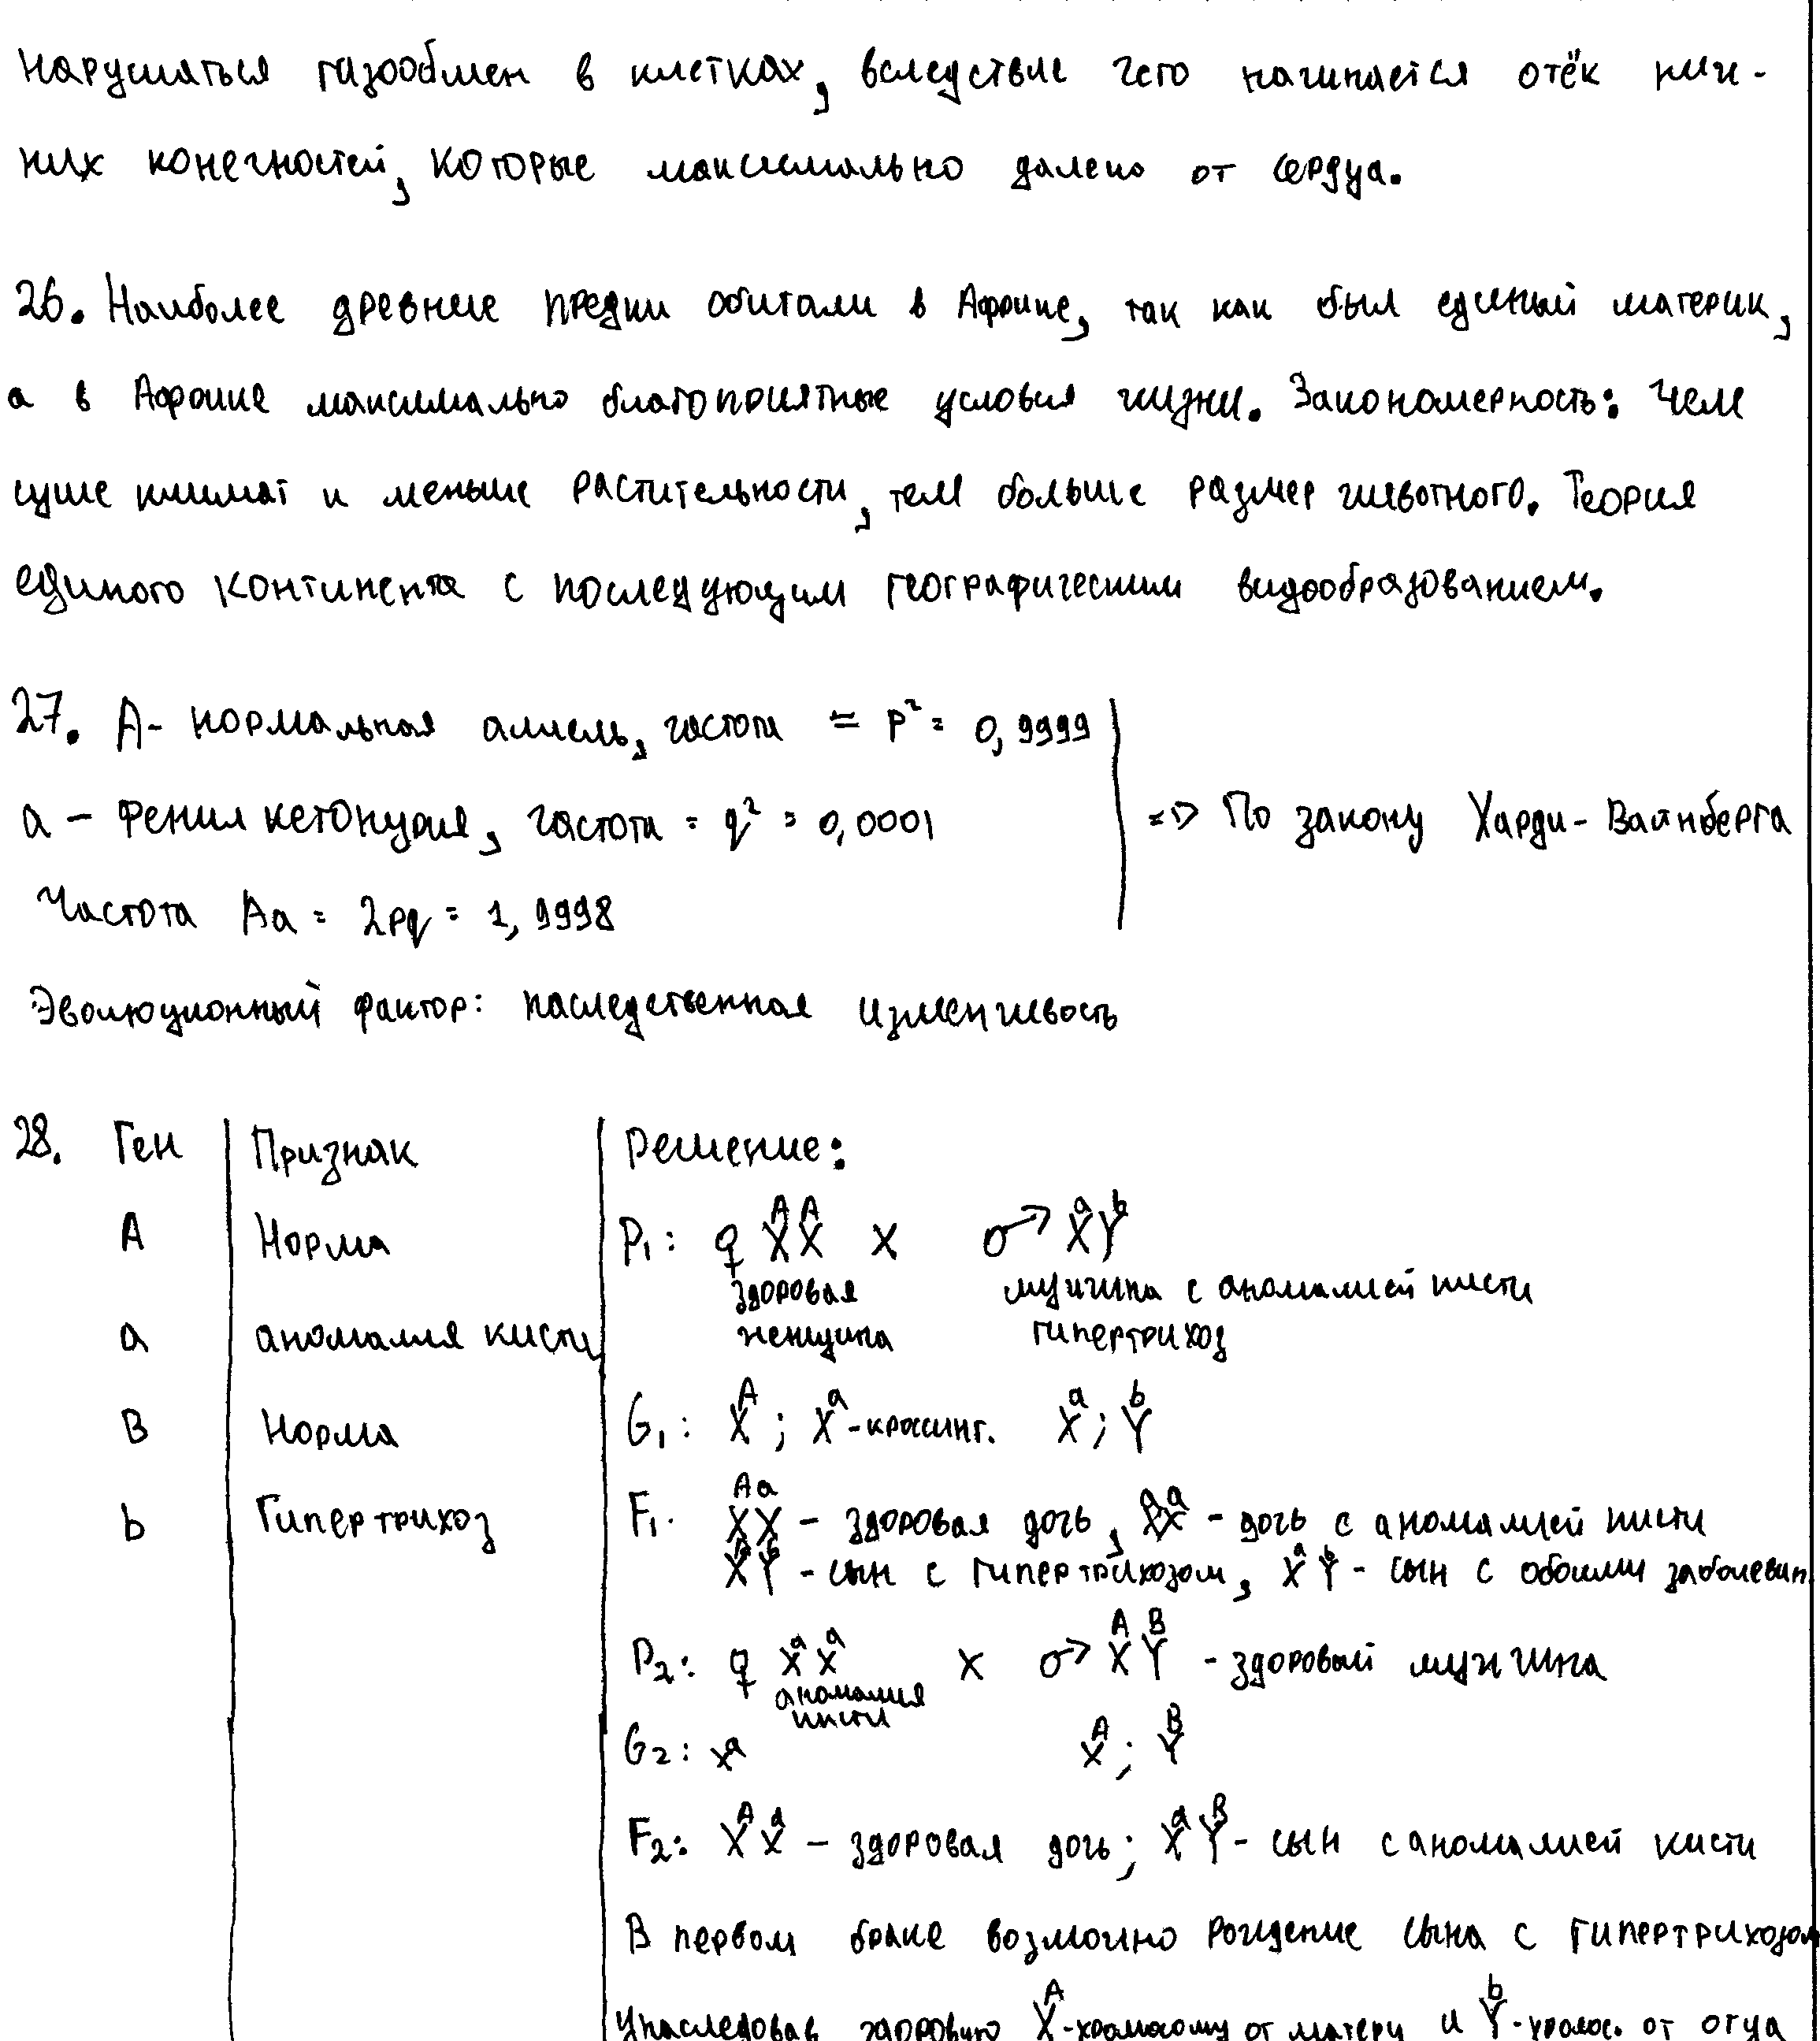 нарушаться газообмен в клетках, вследствие чего начинается отёк ниж-
них конечностей, которые максимально далеко от сердца.
26. Наиболее древние предки обитали в Африке, так как был единый материк,
а в Африке максимально благоприятные условия жизни. Закономерность: чем
суше климат и меньше растительности, тем больше размер животного. Теория
единого континента с последующим географическим видообразованием.
27. A - нормальная аллель, частота = p² = 0,9999
a - фенилкетонурия, частота = q² = 0,0001 => По закону Харди-Вайнберга
Частота Aa = 2pq = 1,9998
Эволюционный фактор: наследственная изменчивость
28. Ген | Признак | Решение:
A | Норма | P₁: ♀ XᴬXᴬ x ♂ XᵃYᵇ
здоровая мужчина с аномалией кисти
a | аномалия кисти | женщина гипертрихоз
B | Норма | G₁: Xᴬ; Xᵃ-кроссинг. Xᵃ; Yᵇ
b | Гипертрихоз | F₁. XᴬXᵃ - здоровая дочь, XᵃXᵃ - дочь с аномалией кисти
XᴬYᵇ - сын с гипертрихозом, XᵃYᵇ - сын с обоими заболеван
P₂: ♀ XᵃXᵃ x ♂ XᴬYᴮ - здоровый мужчина
аномалия
кисти
G₂: Xᵃ Xᴬ; Yᴮ
F₂: XᴬXᵃ - здоровая дочь; XᵃYᴮ - сын с аномалией кисти
В первом браке возможно рождение сына с гипертрихозом
унаследовав здоровую Xᴬ-хромосому от матери и Yᵇ-хромос. от отца